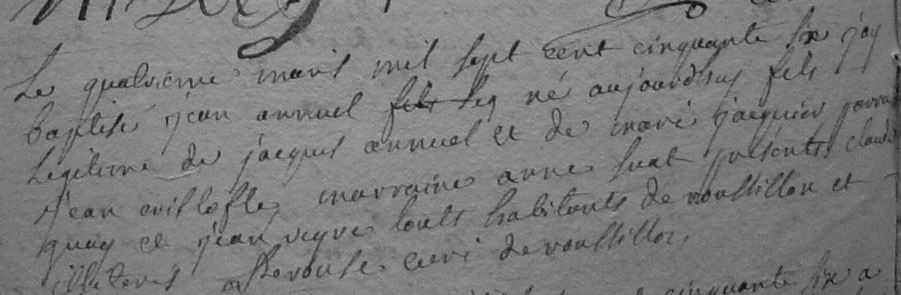 Le quatrieme mars mil sept cent cinquante six jay
baptisé jean annuel fils leg né aujourdhuy fils
Legitime de jacques annuel et de marie jacquier parrai
jean marraine anne huat présents claude
quay et jean veyre touts habitants de roussillon et
illiteres curé de roussillon
cinquante six a